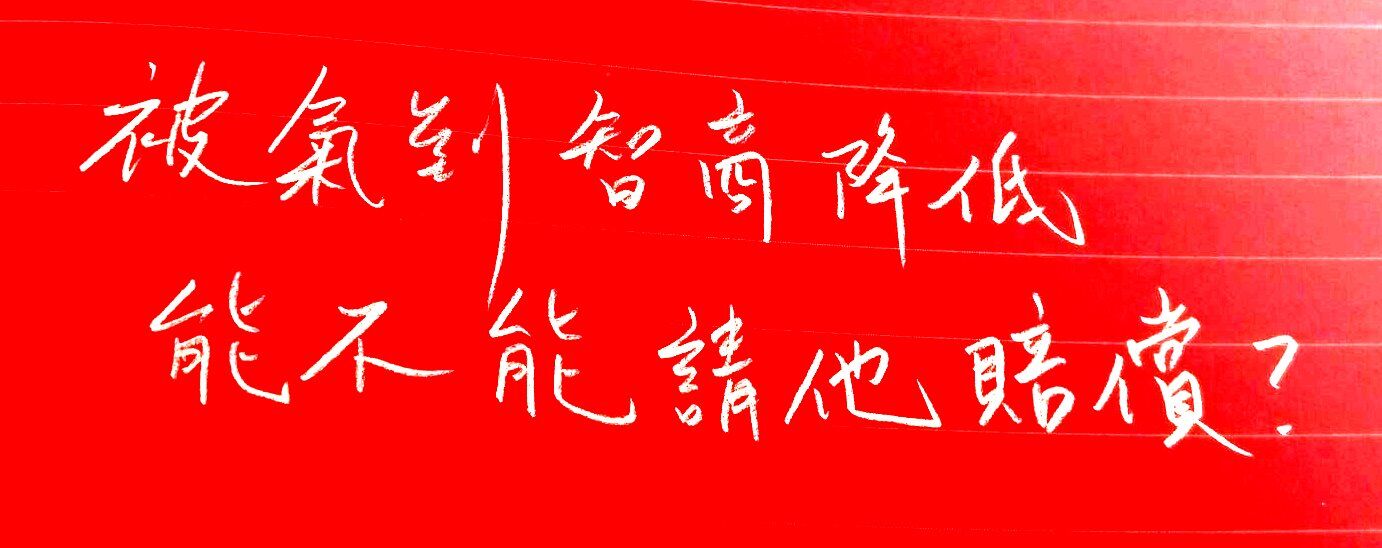 被氣到智商降低
能不能請他賠償?